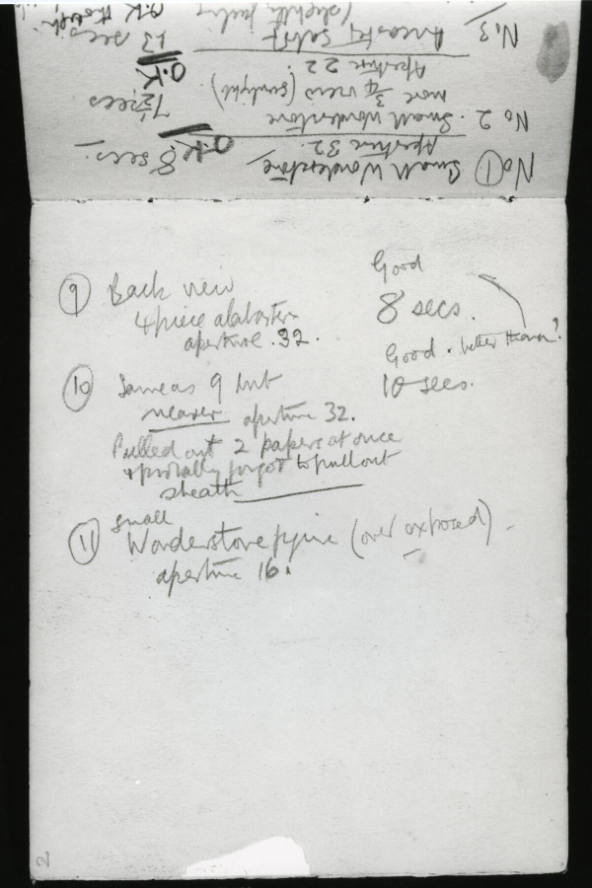 No ① Small Wonderstone / 8 secs.
Aperture 32. O.K.
No 2. Small Wonderstone 7½ secs
more ¾ view (sunlight) O.K.
Aperture 22.
No 3 / Ancaster 13 secs
(slightly O.K.
⑨ Back view Good
4 piece alabaster 8 secs.
aperture .32.
⑩ Same as 9 but Good. better than?
nearer aperture 32. 10 secs.
Pulled out 2 papers at once
& probably forgot to pull out
sheath
⑪ small
Wonderstone figure (over exposed) -
aperture 16.
2